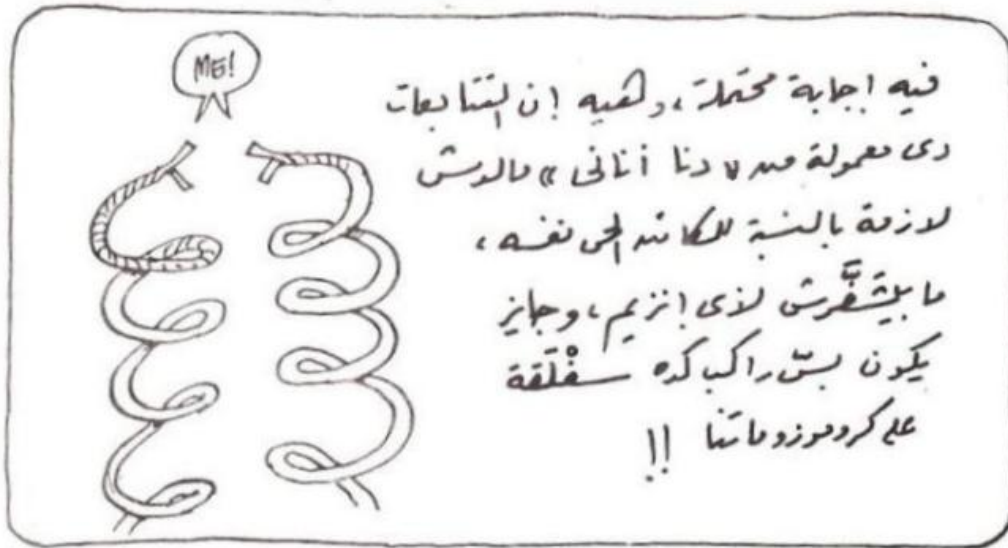 ME!
فيه اجابة محتملة، وهيه إن التتابعات
دى معمولة من « دنا أنانى » مالوش
لازمة بالنسبة للكائن الحى نفسه،
ما بيشَفَّرش لأى إنزيم، وجايز
يكون بسّ راكب كده سفْلَقة
على كروموزوماتنا !!